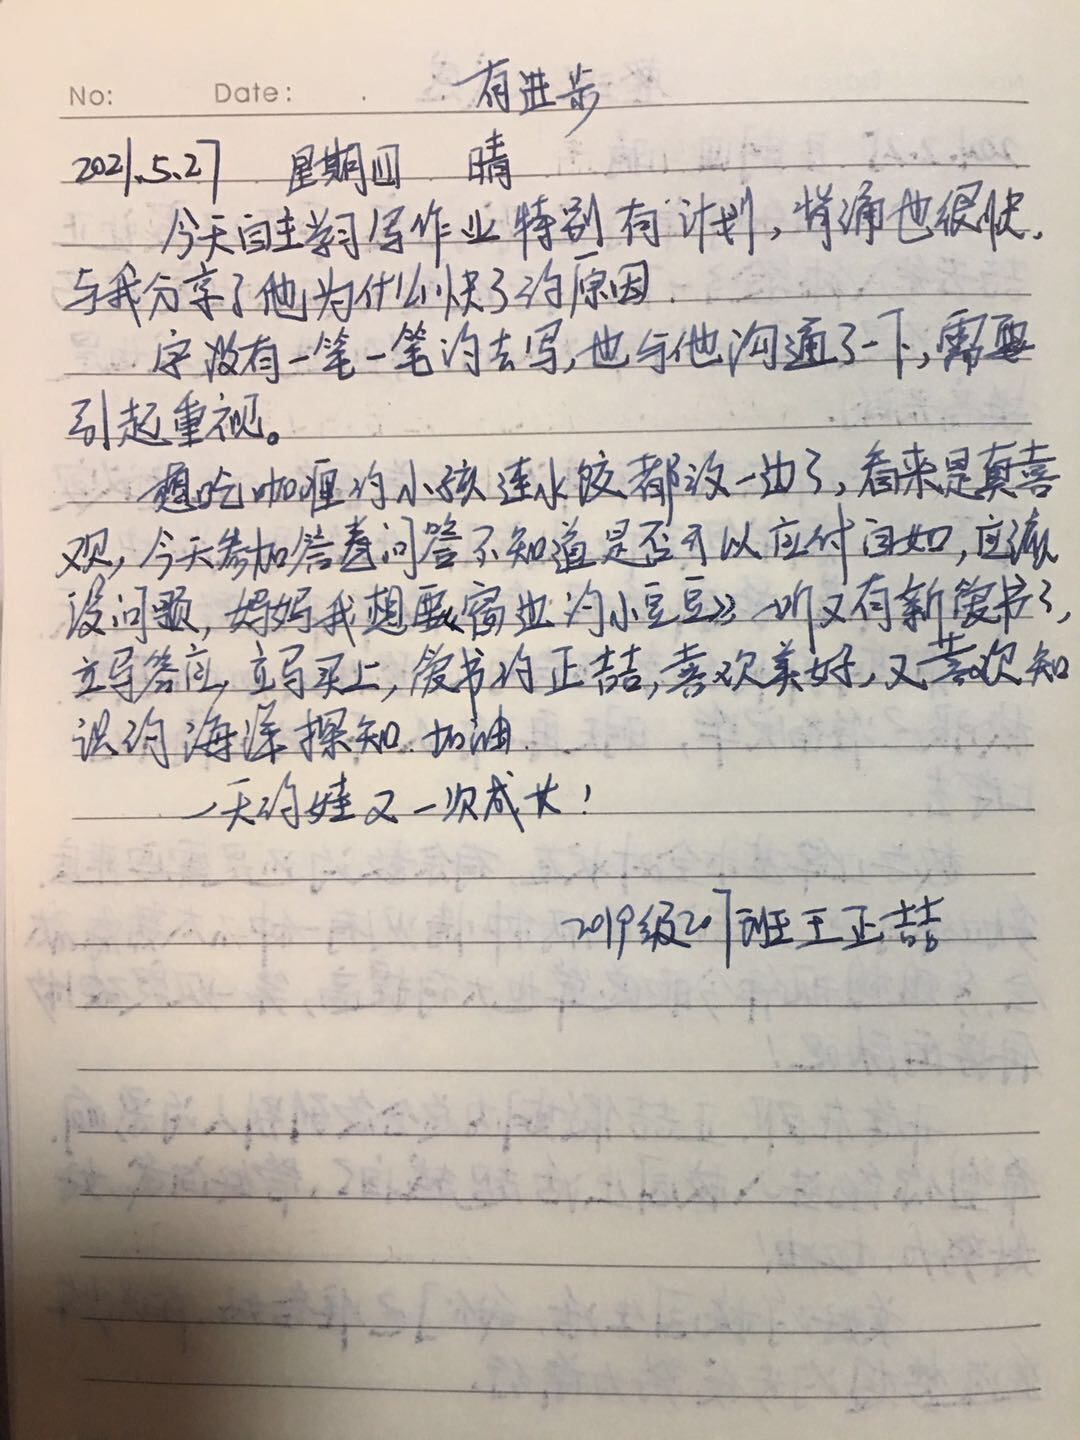 有进步
No: Date:
2021.5.27 星期四 晴
今天自主学习写作业特别有计划，背诵也很快，
与我分享了他为什么快了的原因.
字没有一笔一笔的去写，也与他沟通了一下，需要
引起重视。
想吃咖喱的小孩连水饺都放一边了，看来是真喜
欢，今天参加答卷问答不知道是否可以应付自如，应该
没问题，妈妈我想要窗边的小豆豆》一听又有新爱书了，
立马答应，立马买上，爱书的正喆，喜欢美好，又喜欢知
识的海洋探知.加油.
一天的娃又一次成长！
2019级207班王正喆